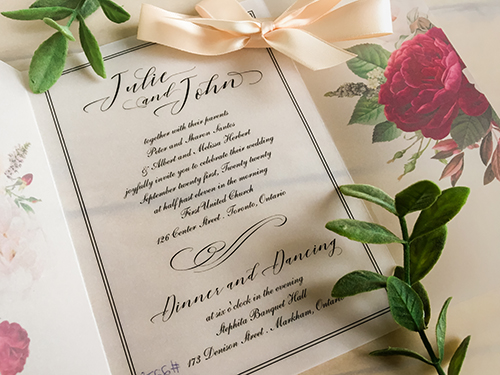 Julie
and John
together with their parents
Peter and Sharon Santos
& Albert and Melissa Herbert
joyfully invite you to celebrate their wedding
September twenty first, Twenty twenty
at half past eleven in the morning
First United Church
126 Center Street . Toronto, Ontario
Dinner and Dancing
at six o'clock in the evening
Stephita Banquet Hall
173 Denison Street . Markham, Ontario